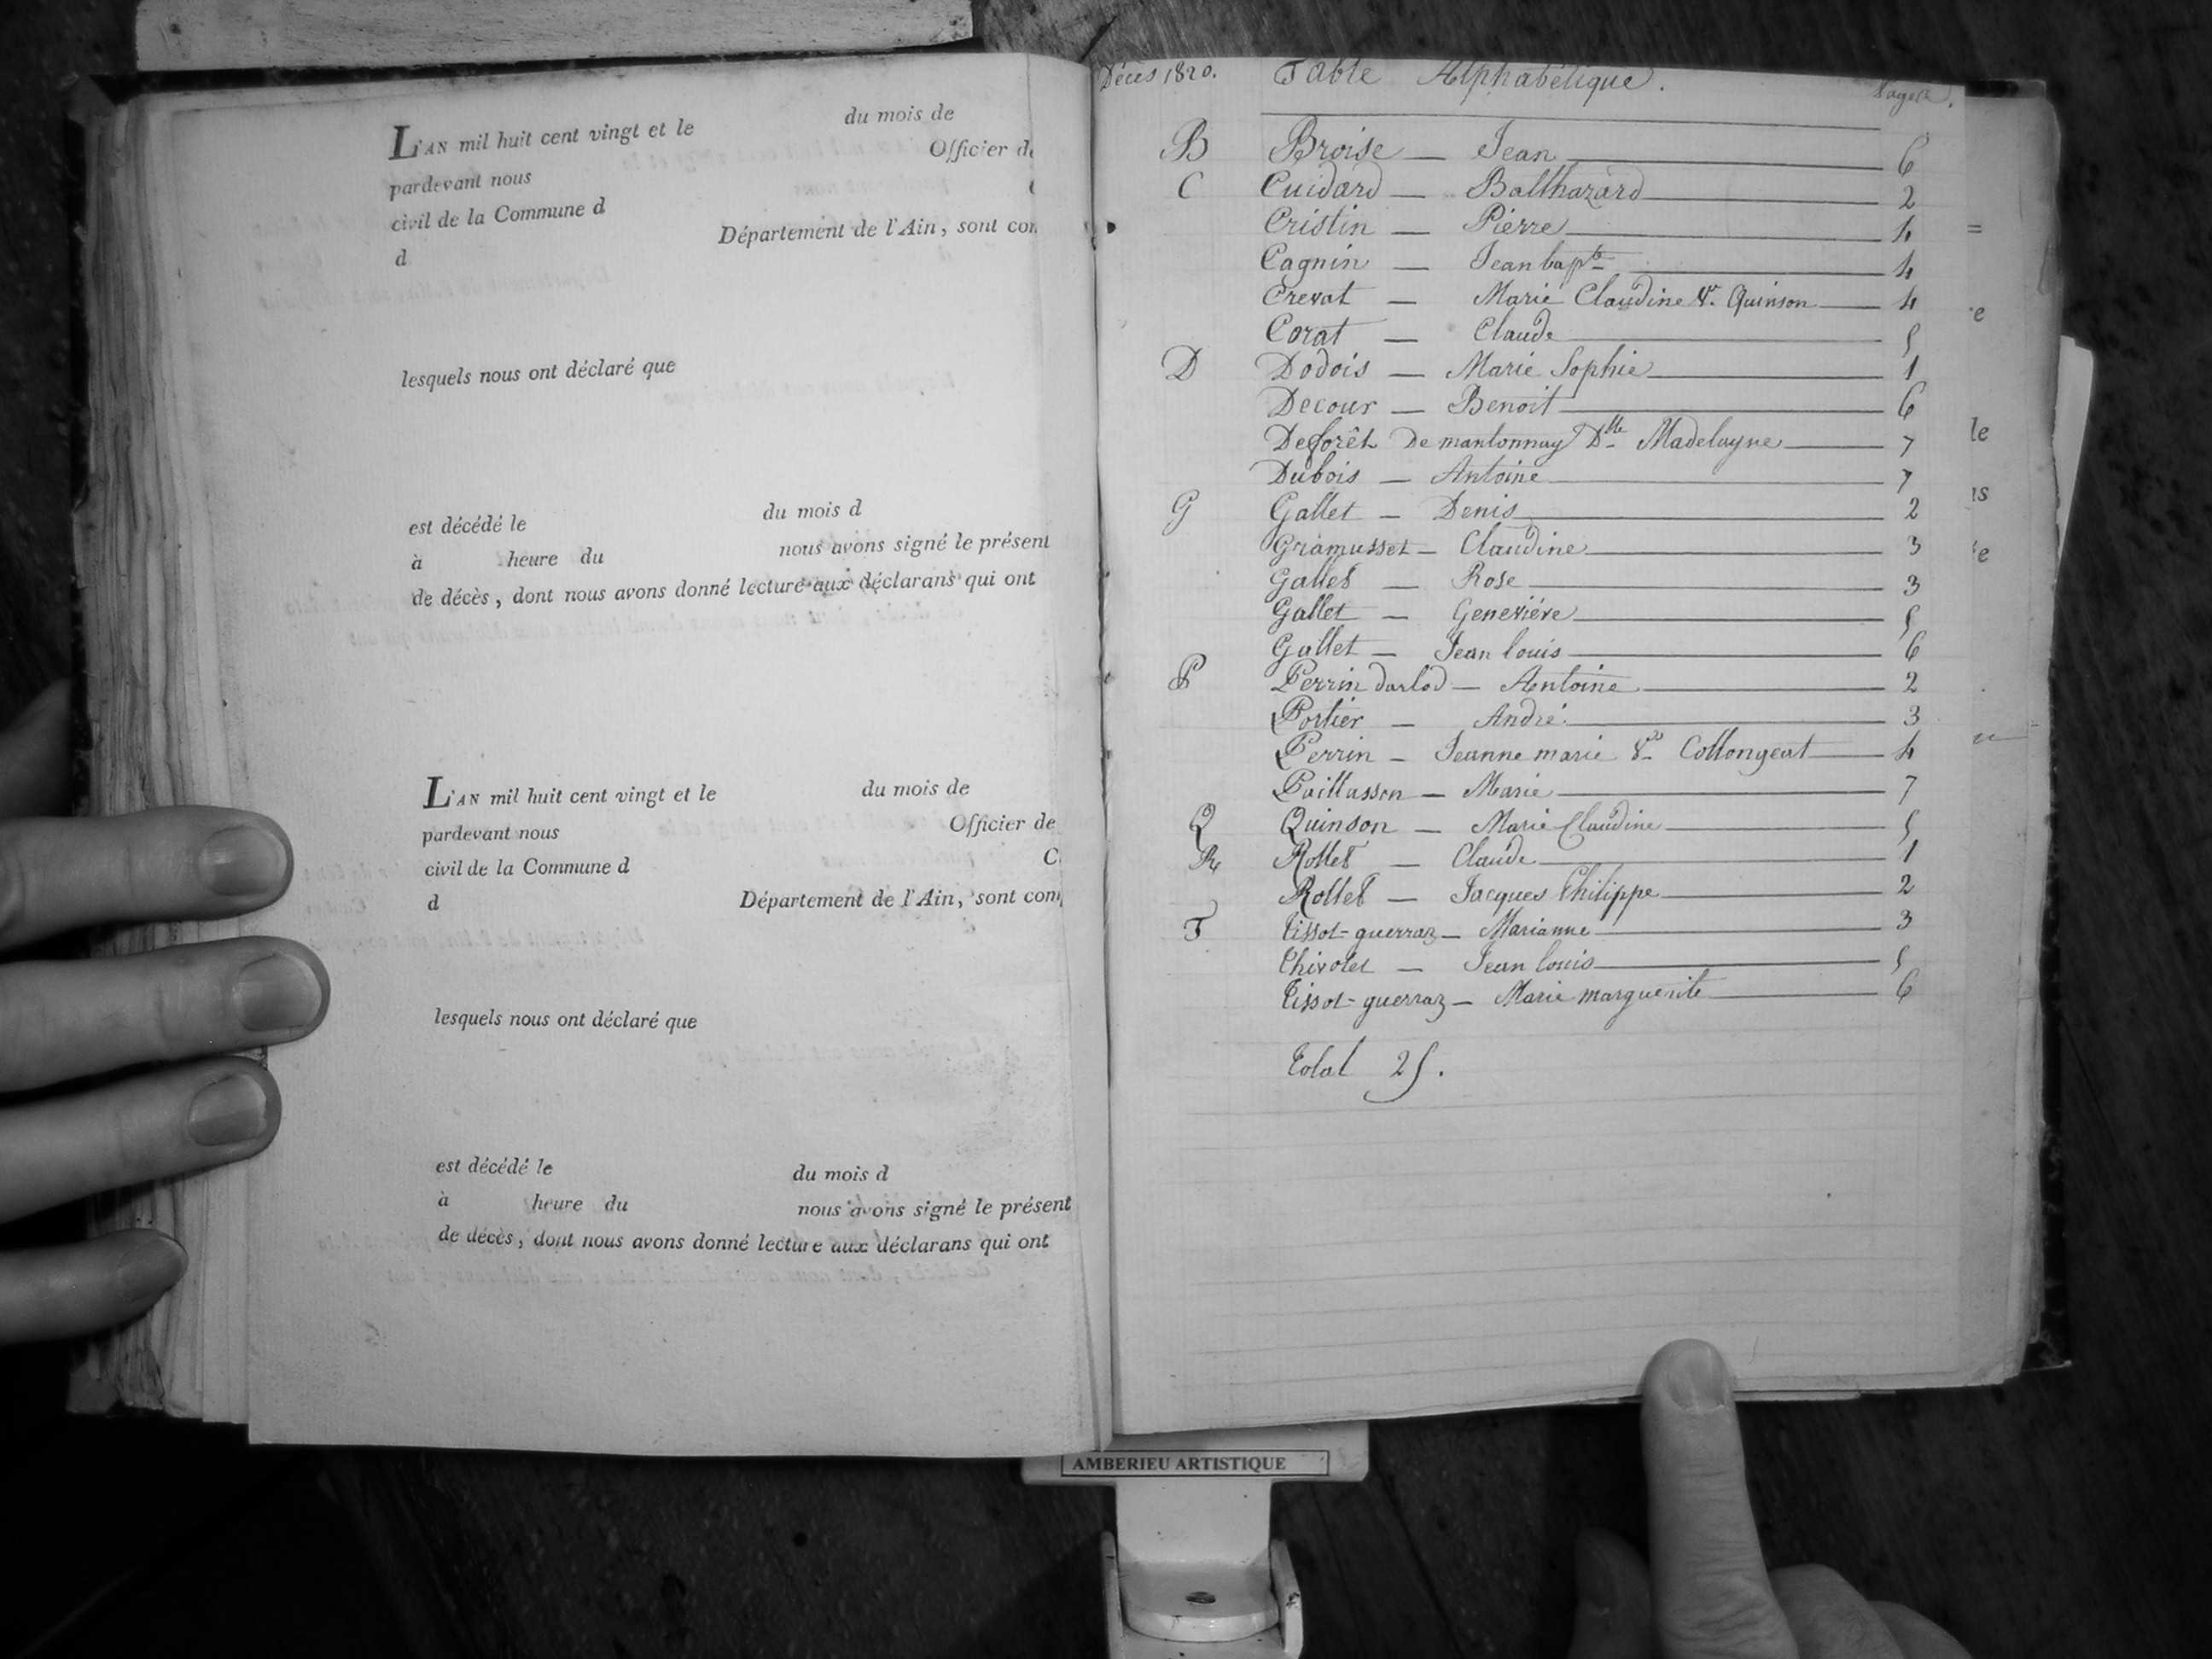 L'AN mil huit cent vingt et le du mois de
pardevant nous Officier de
civil de la Commune d
d Département de l'Ain, sont con
lesquels nous ont déclaré que
est décédé le du mois d
à heure du nous avons signé le présent
de décès, dont nous avons donné lecture aux déclarans qui ont
L'AN mil huit cent vingt et le du mois de
pardevant nous Officier de
civil de la Commune d C
d Département de l'Ain, sont com
lesquels nous ont déclaré que
est décédé le du mois d
à heure du nous avons signé le présent
de décès, dont nous avons donné lecture aux déclarans qui ont
Décès 1820. Table Alphabétique. Pages.
B Broise — Jean 6
C Cuidard — Balthazard 2
Cristin — Pierre 4
Cagnin — Jean bapte 4
Crevat — Marie Claudine Ve Quinson 4
Corat — Claude 5
D Dodois — Marie Sophie 1
Decour — Benoit 6
Deforêt De mantonnay Dlle Madelayne 7
Dubois — Antoine 7
G Gallet — Denis 2
Gramusset — Claudine 3
Gallet — Rose 3
Gallet — Geneviéve 5
Gallet — Jean louis 6
P Perrin darlod — Antoine 2
Portier — André 3
Perrin — Jeanne marie Ve Collongeat 4
Paillasson — Marie 7
Q Quinson — Marie Claudine 5
R Rollet — Claude 1
Rollet — Jacques Philippe 2
T Tissot-guerraz — Marianne 3
Thivolet — Jean louis 5
Tissot-guerraz — Marie marguerite 6
Total 25.
e
le
is
AMBERIEU ARTISTIQUE